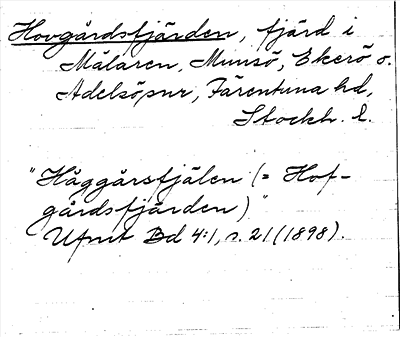 Hovgårdsfjärden, fjärd i
Mälaren, Munsö, Ekerö o.
Adelsöpnr, Färentuna hd,
Stockh. l.
"Håggårsfjälen (= Hof-
gårdsfjärden)"
Ufmt Bd 4:1, s. 21 (1898).